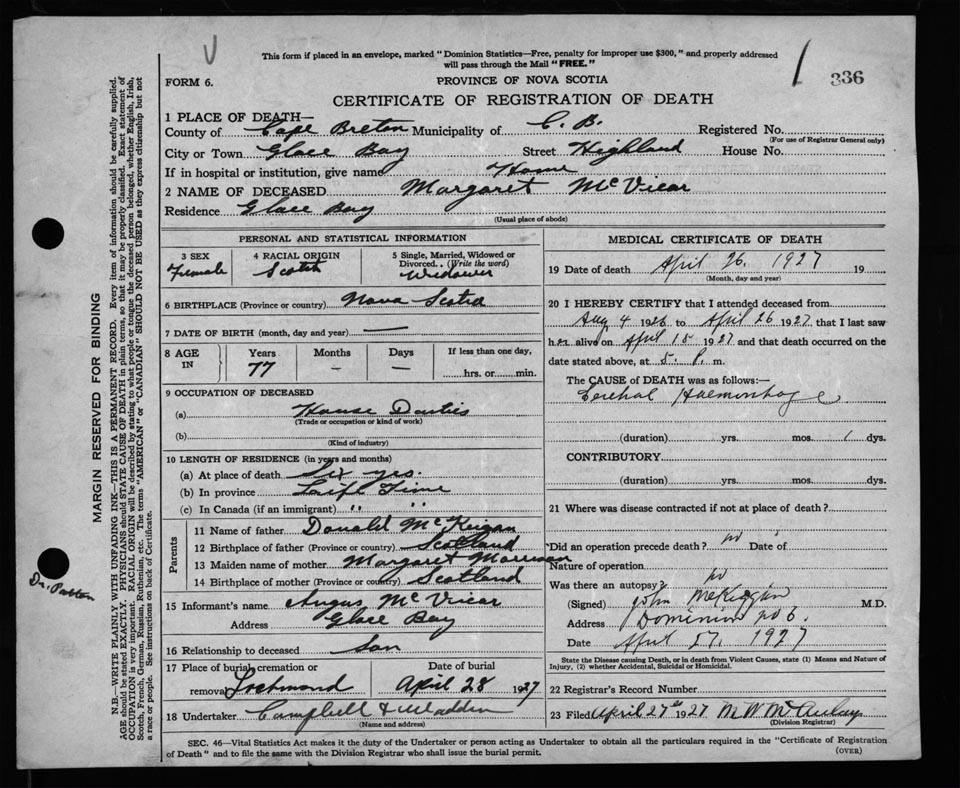 This form if placed in an envelope, marked "Dominion Statistics—Free, penalty for improper use $300," and properly addressed
will pass through the Mail "FREE."
336
FORM 6.
PROVINCE OF NOVA SCOTIA
CERTIFICATE OF REGISTRATION OF DEATH
1 PLACE OF DEATH—
County of Cape Breton Municipality of C. B. Registered No.
(For use of Registrar General only)
City or Town Glace Bay Street Highland House No.
If in hospital or institution, give name Home
2 NAME OF DECEASED Margaret McVicar
Residence Glace Bay
(Usual place of abode)
PERSONAL AND STATISTICAL INFORMATION
3 SEX Female
4 RACIAL ORIGIN Scotch
5 Single, Married, Widowed or Divorced. (Write the word) Widower
6 BIRTHPLACE (Province or country) Nova Scotia
7 DATE OF BIRTH (month, day and year) —
8 AGE IN Years 77 Months – Days – If less than one day, hrs. or min.
9 OCCUPATION OF DECEASED
(a) House Duties
(Trade or occupation or kind of work)
(b)
(Kind of industry)
10 LENGTH OF RESIDENCE (in years and months)
(a) At place of death Six yrs.
(b) In province Laife Time
(c) In Canada (if an immigrant) " "
Parents
11 Name of father Donald McKeigan
12 Birthplace of father (Province or country) Scotland
13 Maiden name of mother Margaret Morrison
14 Birthplace of mother (Province or country) Scotland
15 Informant's name Angus McVicar
Address Glace Bay
16 Relationship to deceased Son
17 Place of burial, cremation or removal Lochmond
Date of burial April 28 1927
18 Undertaker Campbell & Madden
(Name and address)
MEDICAL CERTIFICATE OF DEATH
19 Date of death April 26. 1927 19
(Month, day and year)
20 I HEREBY CERTIFY that I attended deceased from
Aug 4 1926 to April 26 1927 that I last saw
her alive on April 15 1927 and that death occurred on the
date stated above, at 5. P. m.
The CAUSE of DEATH was as follows:—
Cerebral Haemorrhage
(duration) yrs. mos. 1 dys.
CONTRIBUTORY
(duration) yrs. mos. dys.
21 Where was disease contracted if not at place of death?
Did an operation precede death? no Date of
Nature of operation
Was there an autopsy? no
(Signed) John McKiggan M.D.
Address Dominion No 6.
Date April 27. 1927
State the Disease causing Death, or in death from Violent Causes, state (1) Means and Nature of
Injury, (2) whether Accidental, Suicidal or Homicidal.
22 Registrar's Record Number
23 Filed April 27th 1927 M W McAulay
(Division Registrar)
SEC. 46—Vital Statistics Act makes it the duty of the Undertaker or person acting as Undertaker to obtain all the particulars required in the "Certificate of Registration
of Death" and to file the same with the Division Registrar who shall issue the burial permit.
(OVER)
MARGIN RESERVED FOR BINDING
N.B.—WRITE PLAINLY WITH UNFADING INK—THIS IS A PERMANENT RECORD. Every item of information should be carefully supplied.
AGE should be stated EXACTLY. PHYSICIANS should STATE CAUSE OF DEATH in plain terms, so that it may be properly classified. Exact statement of
OCCUPATION is very important. RACIAL ORIGIN will be described by stating to what people or tongue the deceased person belonged, whether English, Irish,
Scotch, French, German, Russian, Ruthenian, etc. The terms "AMERICAN" or "CANADIAN" SHOULD NOT BE USED as they express citizenship but not
a race or people. See instructions on back of Certificate.
Dr. Patton